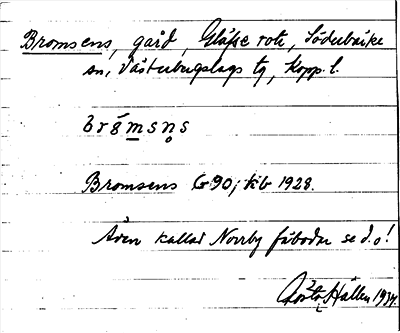 Bromsens, gård, Gläfse rote, Söderbärke
sn, Västerbergslags tg, Kopp. l.
brŏ́m̲sn̥s
Bromsens G 90; kb 1928.
Även kallad Norrby fäbodar se d.o!
Gösta Hallen 1934.